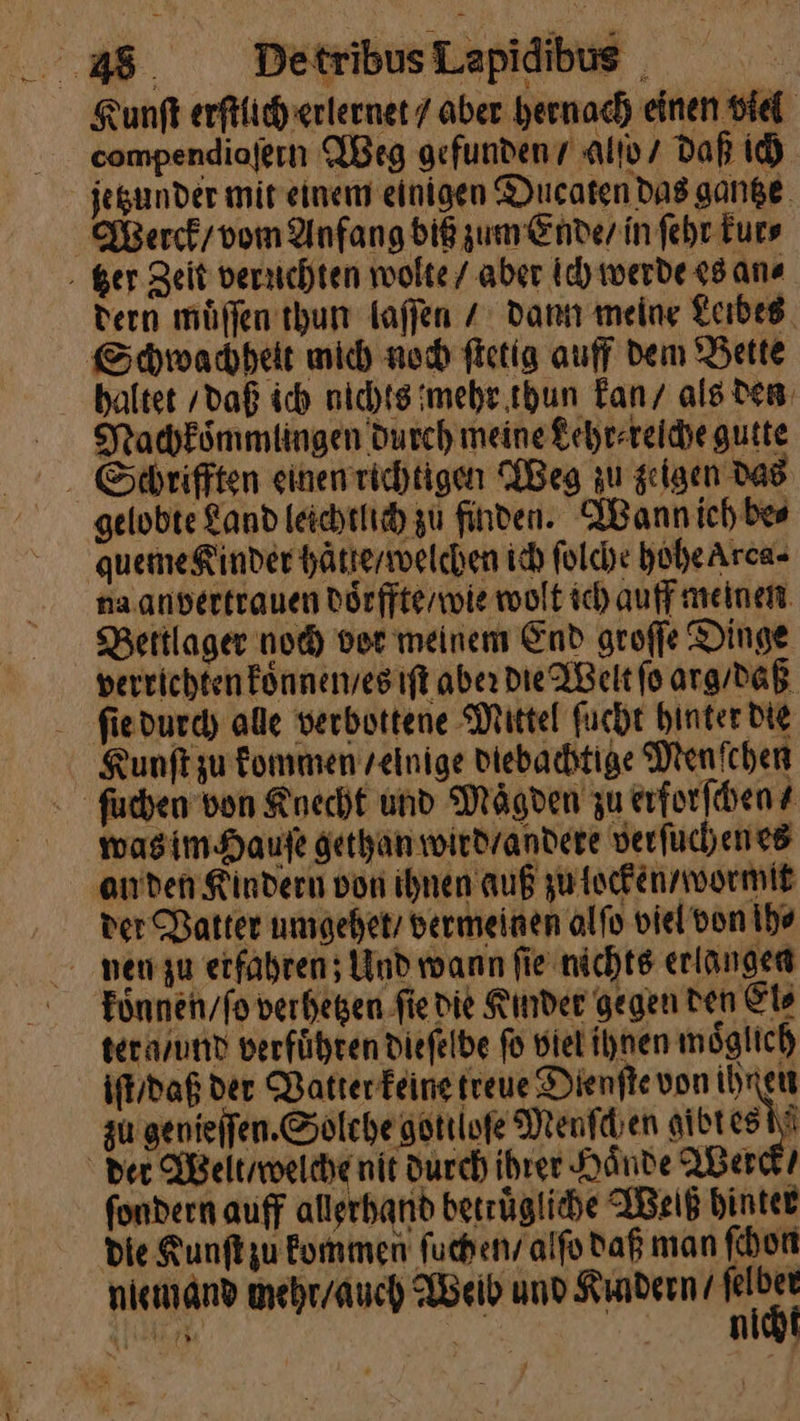 48 De tribus Lapidibus
Kunſt erſtlich erlernet / aber hernach einen viel
compendioſern Weg gefunden / alſo / daß ich
jetzunder mit einem einigen Ducaten das gantze
Werck / vom Anfang biß zum Ende / in ſehr kur⸗
tzer Zeit verrichten wolte / aber ich werde es an⸗
dern muͤſſen thun laſſen / dann meine Leibes
Schwachheit mich noch ſtetig auff dem Bette
haltet / daß ich nichts mehr thun kan / als den
Nachkoͤmmlingen durch meine Lehr⸗reiche gutte
Schrifften einen richtigen Weg zu zeigen das
gelobte Land leichtlich zu finden. Wann ich be⸗
queme Kinder haͤtte / welchen ich ſolche hohe Arca-
na anvertrauen doͤrffte / wie wolt ich auff meinen
Bettlager noch vor meinem End groſſe Dinge
verrichten koͤnnen / es iſt aber die Welt ſo arg / daß
ſie durch alle verbottene Mittel ſucht hinter die
Kunſt zu kommen / einige diebachtige Menſchen
ſuchen von Knecht und Maͤgden zu erforſchen /
was im Hauſe gethan wird / andere verſuchen es
an den Kindern von ihnen auß zu locken / wormit
der Vatter umgehet / vermeinen alſo viel von ih⸗
nen zu erfahren; Und wann ſie nichts erlangen
koͤnnen / ſo verhetzen ſie die Kinder gegen den El⸗
tern / und verfuͤhren dieſelbe ſo viel ihnen moͤglich
iſt / daß der Vatter keine treue Dienſte von ihnen
zu genieſſen. Solche gottloſe Menſchen gibt es in
der Welt / welche nit durch ihrer Haͤnde Werck /
ſondern auff allerhand betruͤgliche Weiß hinter
die Kunſt zu kommen ſuchen / alſo daß man ſchon
niemand mehr / auch Weib und Kindern / ſelber
nicht